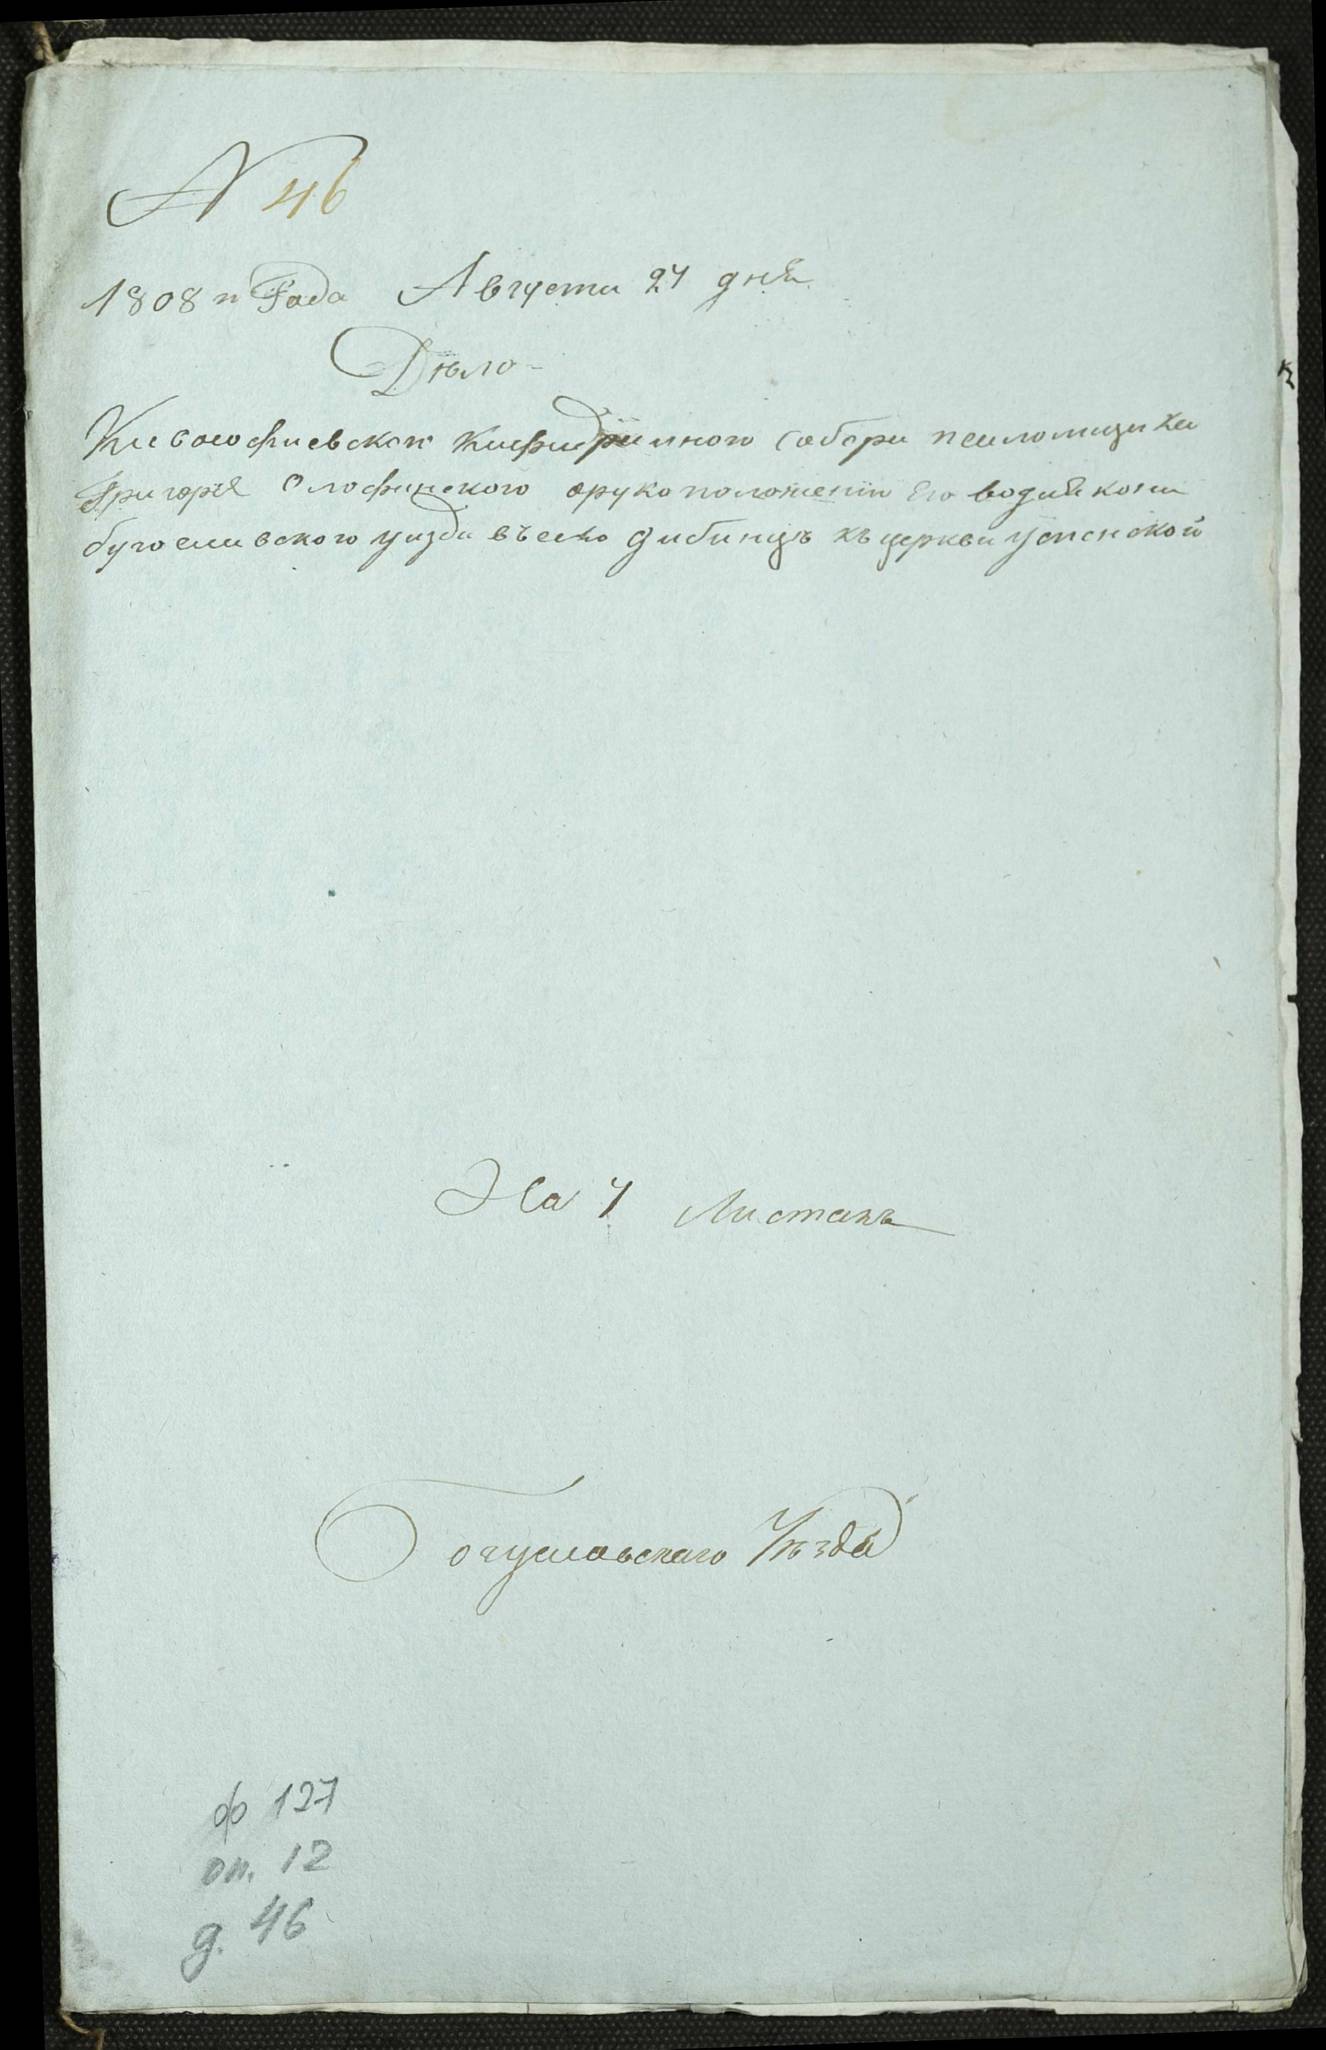 N 46
1808 п Года Августа 24 дня
Дѣло
Киевософиевскоп Кафедралного Собора псаломщика
Григорія Олофинского орукоположеніи Его водиякона
бугославского уизда въсело дибинцъ къ церкви успенской
На 7 Листахъ
Богуславскаго Уѣзда
ф 127
оп. 12
д. 46